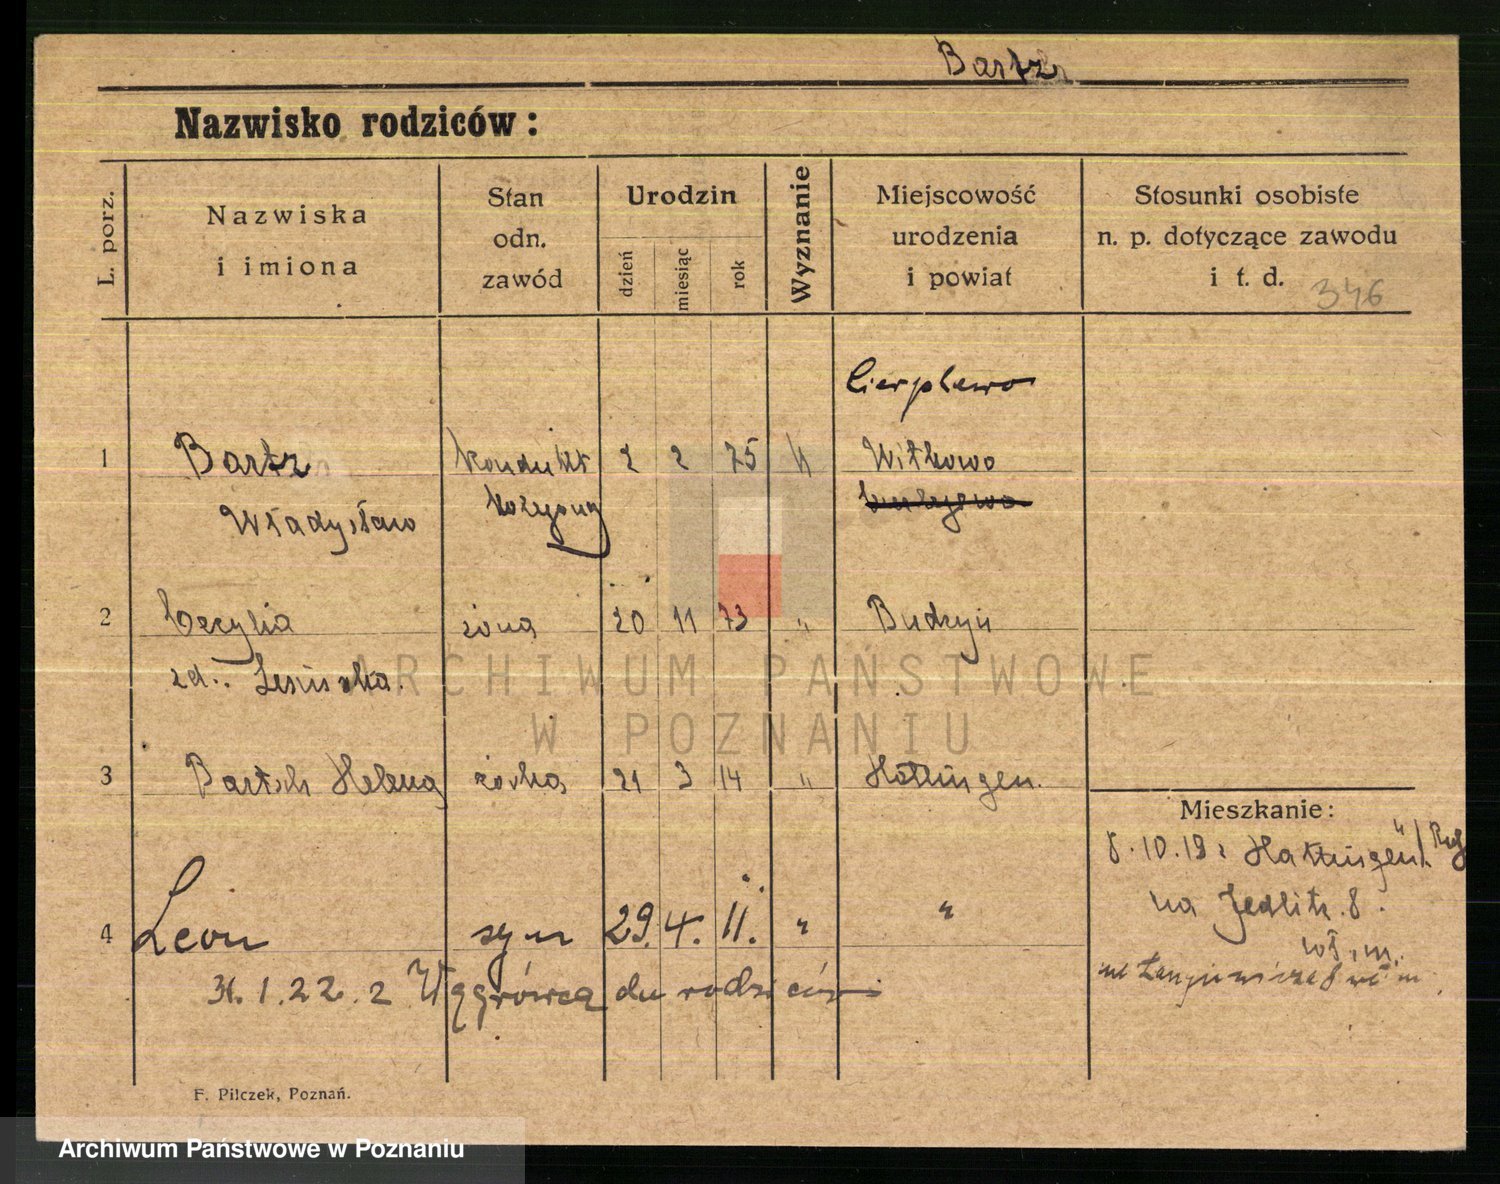 Bartz
Nazwisko rodziców:
L. porz.
Nazwiska
i imiona
Stan
odn.
zawód
Urodzin
dzień
miesiąc
rok
Wyznanie
Miejscowość
urodzenia
i powiat
Stosunki osobiste
n. p. dotyczące zawodu
i t. d.
346
Cierplewo
1 Bartz kondukt 2 2 75 Witkowo
Władysław
2 Cecylia żona 20 11 73 " Budzyń
zd.
3 Bartsch Helena córka 21 3 14 " Hattingen.
Mieszkanie:
8.10.19 z Hattingen
na Jedlitz. 8.
wł. m.
4 Leon syn 29. 4. 11. " "
31.1.22. z Wągrówca do rodziców
ARCHIWUM PAŃSTWOWE
W POZNANIU
F. Pilczek, Poznań.
Archiwum Państwowe w Poznaniu